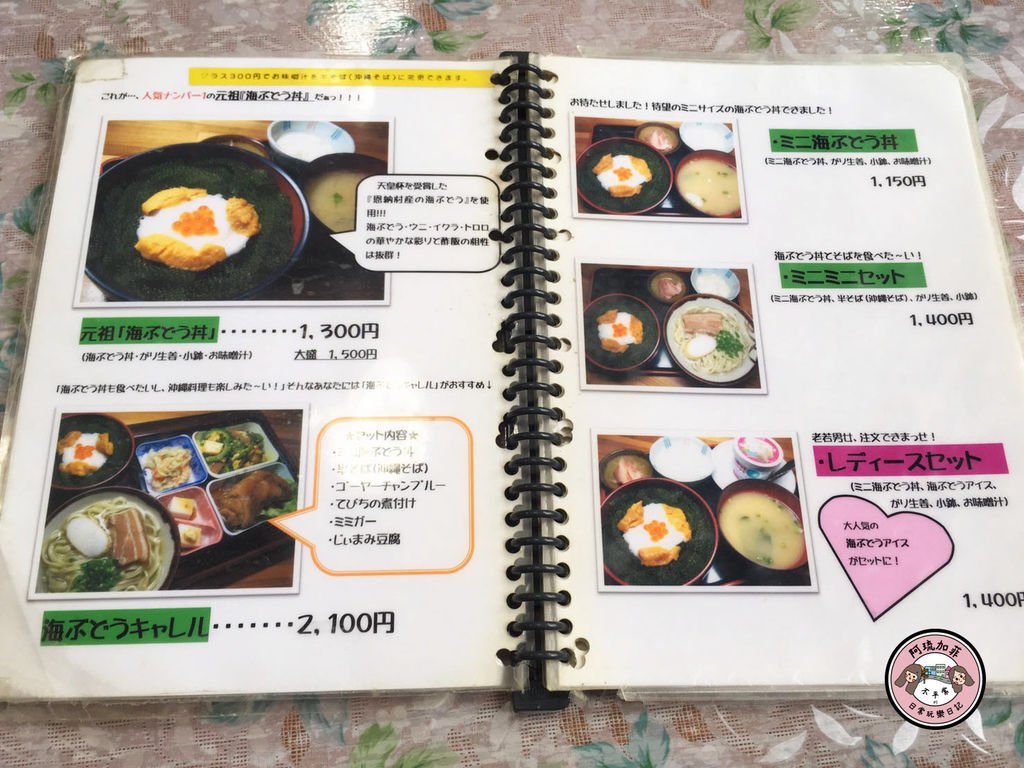 プラス300円でお味噌汁を半そば(沖縄そば)に変更できます。
これが…、人気ナンバー1の元祖『海ぶどう丼』だぁっ!!!
天皇杯を受賞した
『恩納村産の海ぶどう』を使
用!!!
海ぶどう・ウニ・イクラ・トロロ
の華やかな彩りと酢飯の相性
は抜群!
元祖「海ぶどう丼」・・・・・・・・1,300円
(海ぶどう丼・がり生姜・小鉢・お味噌汁) 大盛 1,500円
「海ぶどう丼も食べたいし、沖縄料理も楽しみた～い!」そんなあなたには「海ぶどうキャレル」がおすすめ↓
★セット内容★
・ミニ海ぶどう丼
・半そば(沖縄そば)
・ゴーヤーチャンプルー
・てびちの煮付け
・ミミガー
・じぃまみ豆腐
海ぶどうキャレル・・・・・・・2,100円
お待たせしました!待望のミニサイズの海ぶどう丼できました!
・ミニ海ぶどう丼
(ミニ海ぶどう丼、がり生姜、小鉢、お味噌汁)
1,150円
海ぶどう丼とそばを食べた～い!
・ミニミニセット
(ミニ海ぶどう丼、半そば(沖縄そば)、がり生姜、小鉢)
1,400円
老若男女、注文できまっせ!
・レディースセット
(ミニ海ぶどう丼、海ぶどうアイス、
がり生姜、小鉢、お味噌汁)
大人気の
海ぶどうアイス
がセットに!
1,400円
阿琉加菲
日常玩樂日記